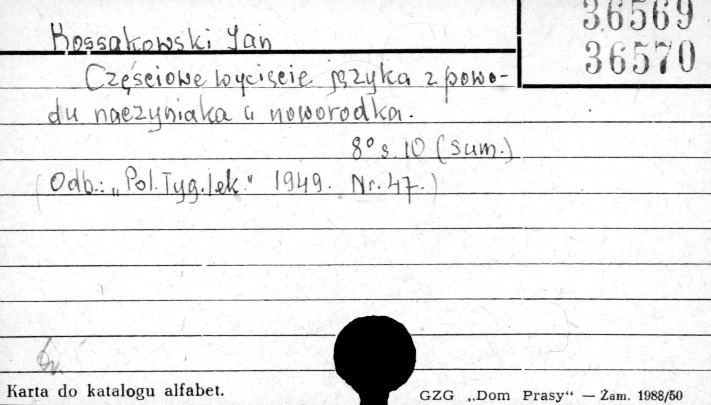 36569
36570
Kossakowski Jan
Częściowe wycięcie języka z powo-
du naczyniaka u noworodka.
8° s. 10 (sum.)
(Odb.: „Pol. Tyg. lek." 1949. Nr. 47.)
Karta do katalogu alfabet.
GZG „Dom Prasy" — Żam. 1988/50